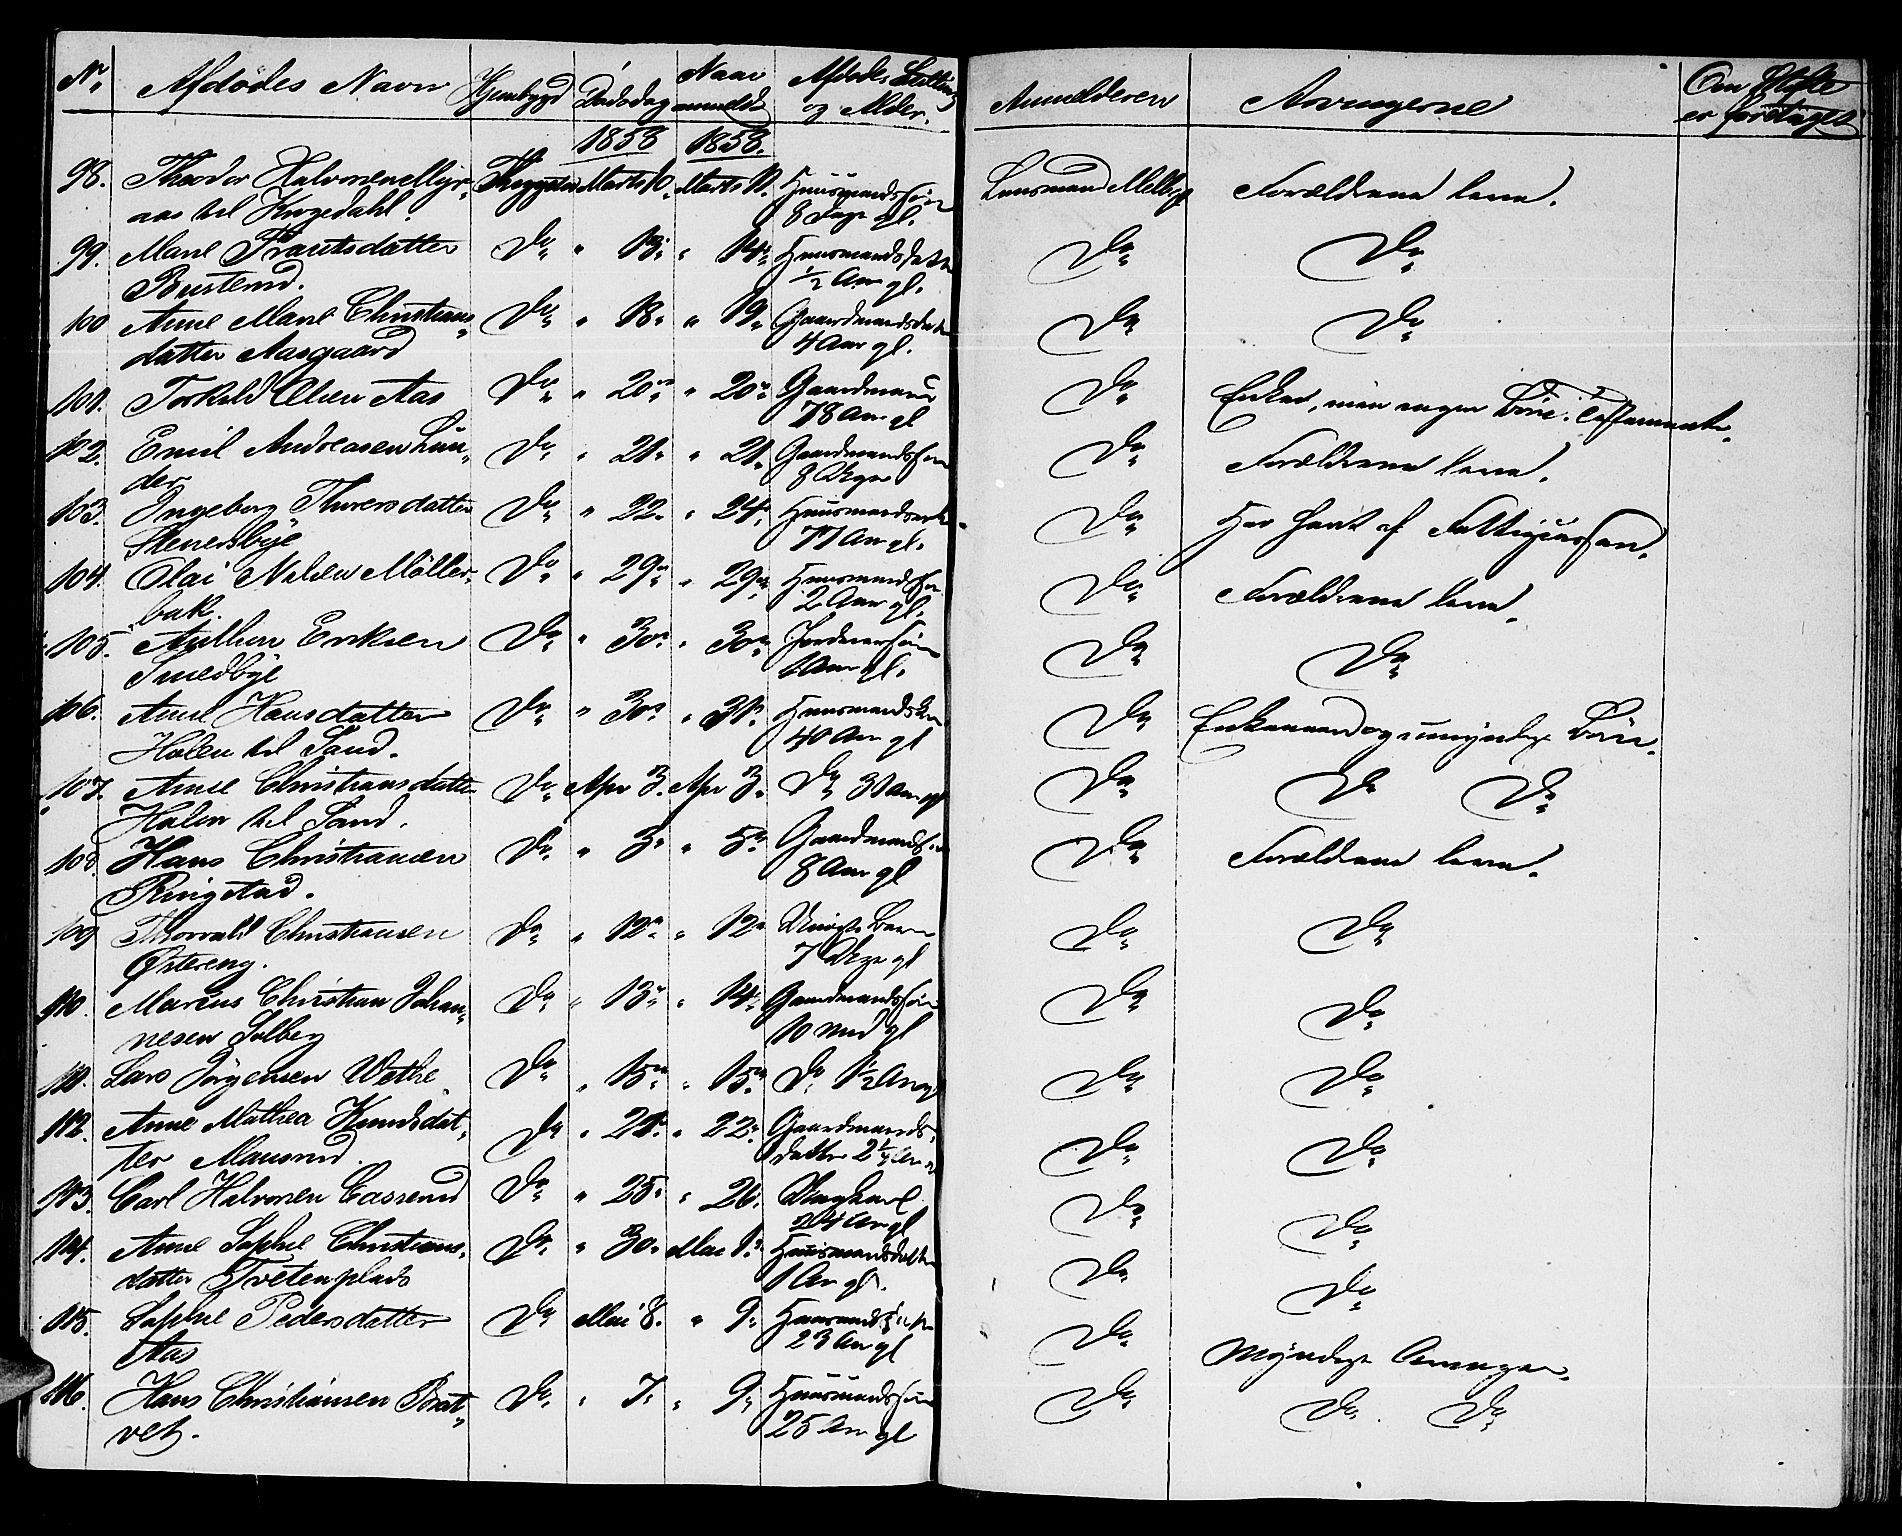 Nr. Afdødes Navn Hjembygd Dødsdag Naar anmeldt Afdødes Stilling og Alder. Anmelderen Arvingerne Om Skifte er foretaget
1858 1858.
98. Theodor Halvorsen Myr- Thrygstad Marts 10. Marts 11. Huusmandssøn Lensmand Melbye Forældrene leve.
aas til Krogedahl. 8 Dage gl.
99. Marie Frantsdatter Do " 13. " 14. Huusmandsdatter Do Do
Busterud. ½ Aar gl.
100 Anne Marie Christians- Do " 18. " 19. Gaardmandsdatter Do Do
datter Aasgaard 4 Aar gl.
101. Torkild Olsen Aas Do " 20. " 20. Gaardmand Do Enke, men ingen Børn. Testamente.
78 Aar gl
102. Emil Andreasen Lun- Do " 21. " 21. Gaardmandssøn Do Forældrene leve.
der 8 Uger
103. Ingeborg Thoresdatter Do " 22. " 24. Huusmandsenke Do Har havt af Fattigcassen.
Stenersbye 77 Aar gl.
104. Olai Nilsen Møller- Do " 29. " 29. Huusmandssøn Do Forældrene leve.
bak. 2 Aar gl.
105. Anthon Eriksen Do " 30. " 30. Inderstsøn Do Do
Smedbye 1 Aar gl.
106. Anne Hansdatter Do " 30. " 31. Huusmandskone Do Enkemand og umyndige Børn.
Holen til Sand. 40 Aar gl
107. Anne Christiansdatter Do Apr 3. Apr 3. Do 30 Aar gl Do Do Do
Holen til Sand.
108. Hans Christiansen Do " 3. " 5. Gaardmandssøn Do Forældrene leve.
Ringstad. 8 Aar gl
109 Thorvald Christiansen Do " 12. " 12. Uægte Barn Do Do
Østereng. 7 Uger gl
110. Marius Christian Johan- Do " 13. " 14. Gaardmandssøn Do Do
nesen Solberg 10 Md gl
111. Lars Jørgensen Wethe. Do " 15. " 15. Do 1½ Aar gl Do Do
112. Anne Mathea Knudsdat- Do " 21. " 22. Gaardmands- Do Do
ter Mausrud. datter 2½ Aar
113. Carl Halvorsen Casserud Do " 25. " 26. Ungkarl Do Do
24 Aar gl
114. Anne Sophie Christians- Do " 30. Mai 1. Huusmandsdatter Do Do
datter Tvetenplads 1 Aar gl.
115. Sophie Pedersdatter Do Mai 8. " 9. Do Myndige Arvinger.
Aas 23 Aar gl
116. Hans Christiansen Brat- Do " 7. " 9. Huusmandssøn Do Do. Do
vet. 25 Aar gl